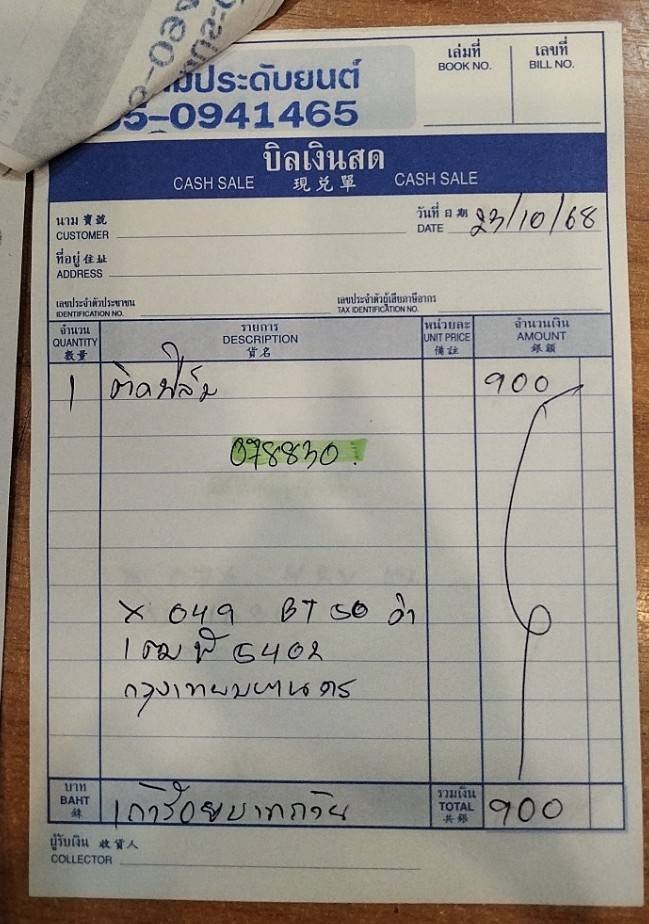 ประดับยนต์
5-0941465
เล่มที่
BOOK NO.
เลขที่
BILL NO.
บิลเงินสด
CASH SALE 現兌單 CASH SALE
นาม 寶號
CUSTOMER
วันที่ 日期 23/10/68
DATE
ที่อยู่ 住址
ADDRESS
เลขประจำตัวประชาชน
IDENTIFICATION NO.
เลขประจำตัวผู้เสียภาษีอากร
TAX IDENTIFICATION NO.
จำนวน
QUANTITY
數量
รายการ
DESCRIPTION
貨名
หน่วยละ
UNIT PRICE
備註
จำนวนเงิน
AMOUNT
銀額
1 ติดฟิล์ม 900
078830
X 049 BT 50 ดำ
5402
กรุงเทพมหานคร
บาท
BAHT
銖
เก้าร้อยบาทถ้วน
รวมเงิน
TOTAL
共銀
900
ผู้รับเงิน 收貨人
COLLECTOR